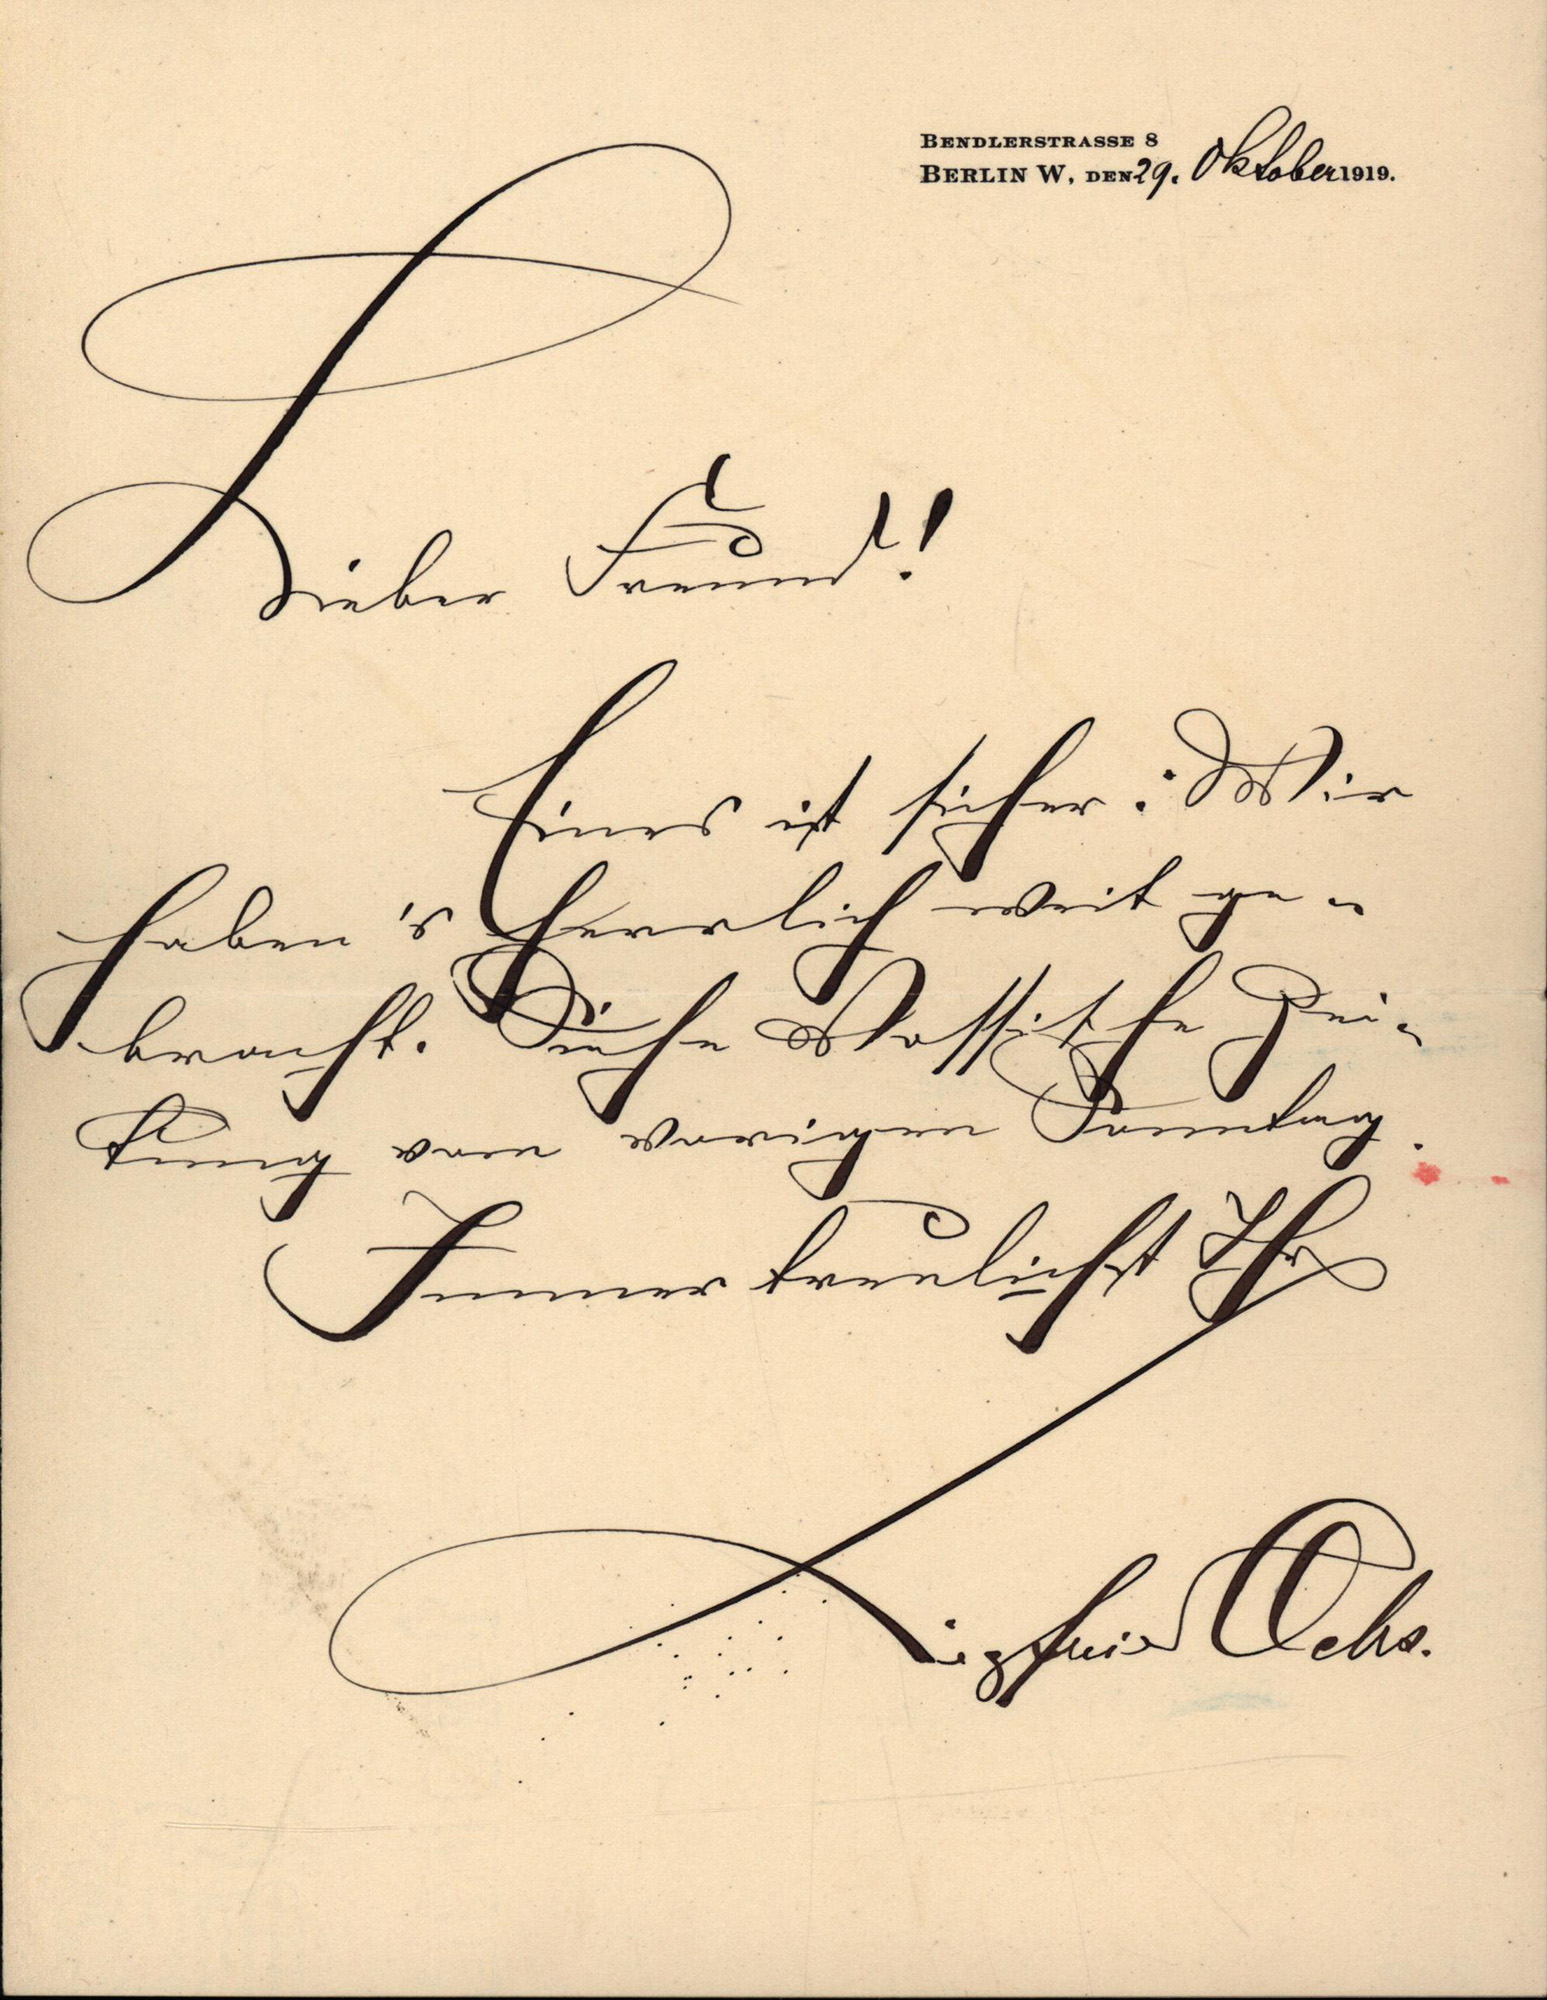 BENDLERSTRASSE 8
BERLIN W, DEN 29. Oktober 1919.
Lieber Freund!
Eines ist sicher: Wir
haben 's herrlich weit ge-
bracht. Siehe Vossische Zei-
tung vom vorigen Sonntag.
Immer treulichst Ihr
Siegfried Ochs.